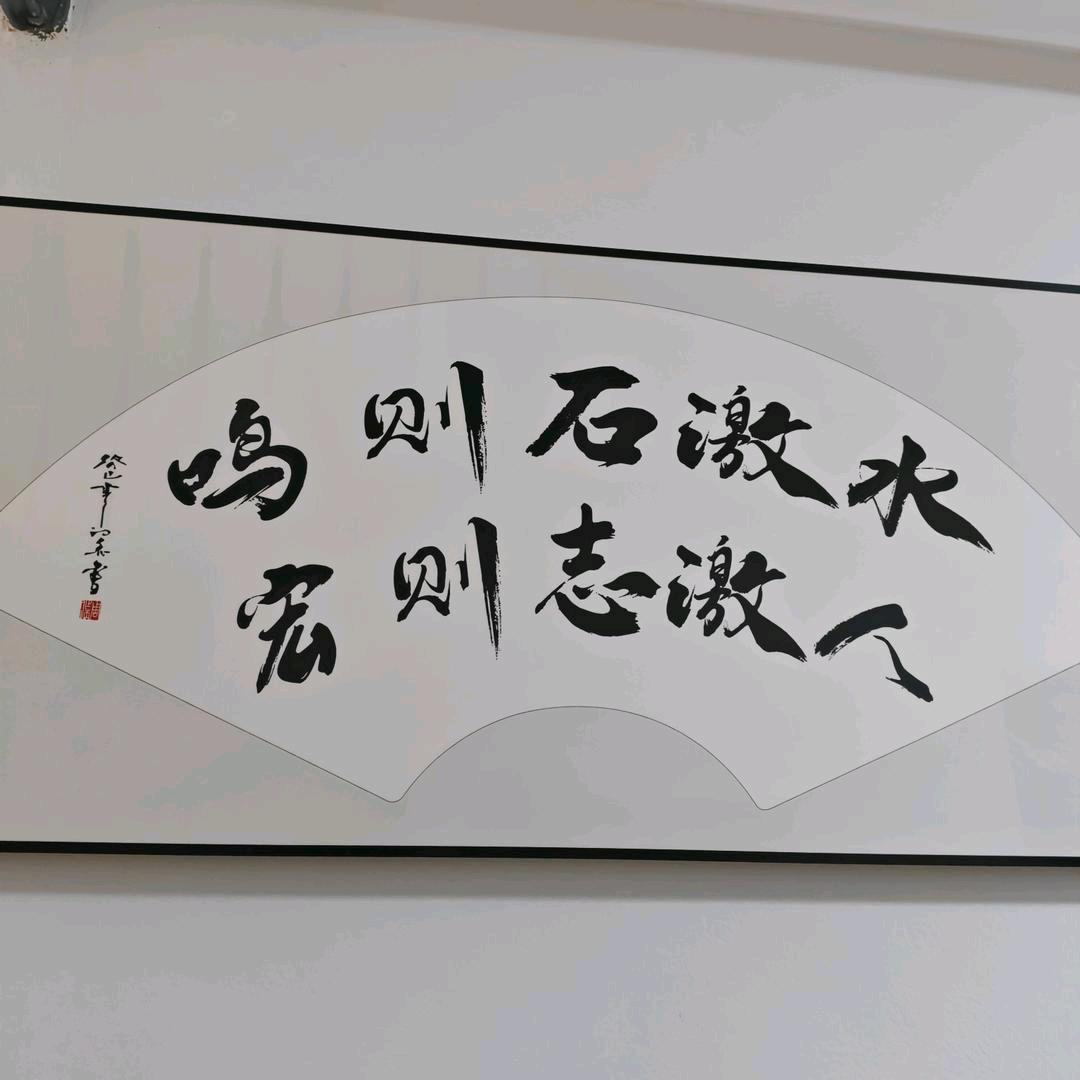 水激石则鸣
人激志则宏
癸巳年
書